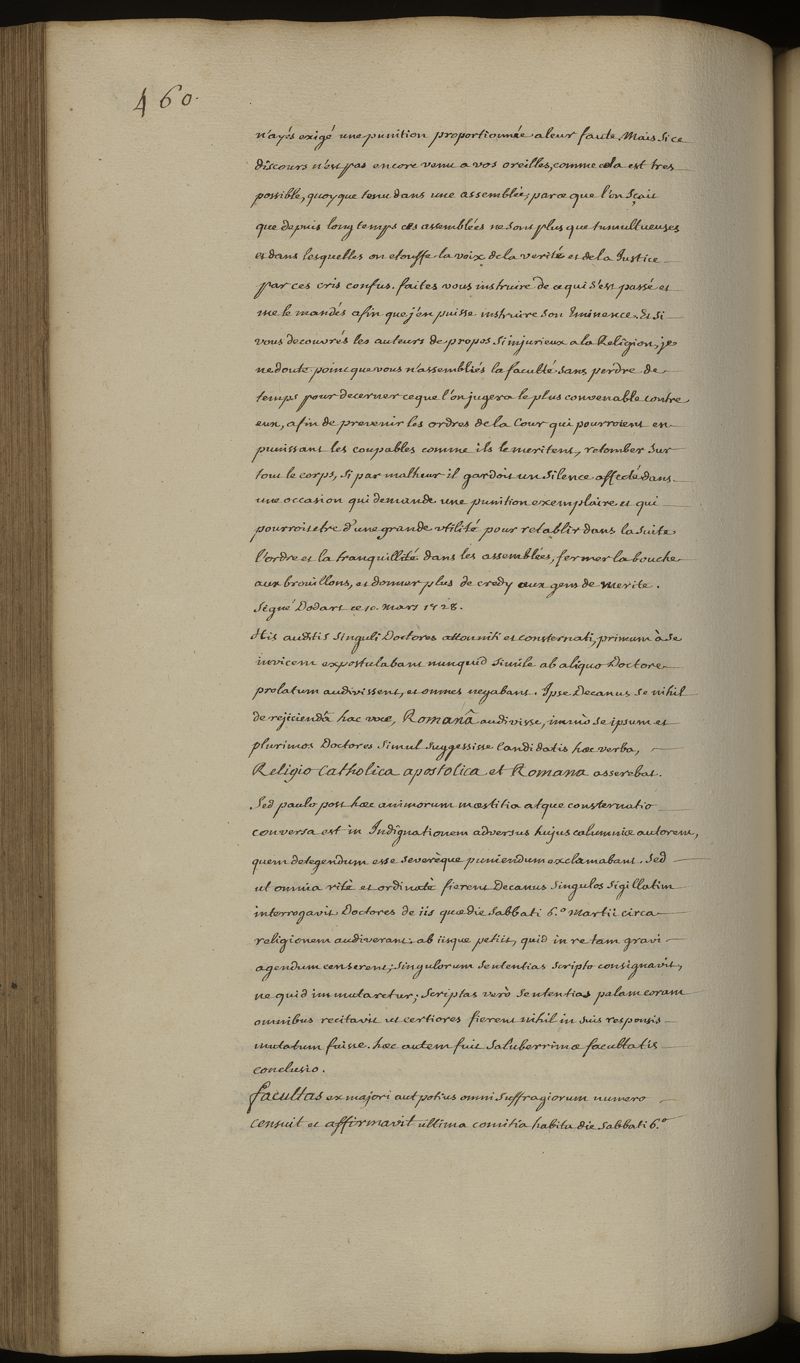 460.
n'ayés exigé une punition proportionnée a leur faute. Mais si ce
discours n'est pas encore venu a vos oreilles, comme cela est tres
possible, quoyque tenu dans une assemblée, parce que l'on sçait
que depuis long temps ces assemblées ne sont plus que tumultueuses
et dans lesquelles on etouffe la voix de la verité et de la Justice
par ces cris confus. faites vous instruire de ce qui s'est passé et
me le mandés afin que j'en puisse instruire son Eminence. Et si
vous decouvrés les auteurs de propos si injurieux a la Religion, je
ne doute point que vous n'assembliés la faculté sans perdre de
temps pour decerner ce que l'on jugera le plus convenable contre
eux, afin de prevenir les ordres de la Cour qui pourroient en
punissant les coupables comme ils le meritent, retomber sur
tout le corps, si par malheur il gardoit un silence affecté dans
une occasion qui demande une punition exemplaire et qui
pourroit etre d'une grande utilité pour retablir dans la suite
l'ordre et la tranquillité dans les assemblées, fermer la bouche
aux brouillons, et donner plus de credy aux gens de merite.
Signé Dodart ce 10. mars 1728.
His auditis singuli Doctores attoniti et consternati, primum à se
invicem expostulabant nunquid simile ab aliquo Doctore
prolatum audivissent, et omnes negabant. Ipse Decanus se nihil
de rejiciendâ hac voce, Romanâ audivisse, immò se ipsum et
plurimos Doctores simul suggessisse Candidatis hæc verba,
Religio Catholica apostolica et Romana asserebat.
Sed paulo post hæc animorum mœstitia atque consternatio
conversa est in Indignationem adversus hujus calumniæ autorem,
quem detegendum esse severèque puniendum exclamabant. Sed
ut omnia ritè et ordinatè fierent Decanus singulos sigillatim
interrogavit Doctores de iis quæ die Sabbati 6.º Martii circa
religionem audiverant. ab iisque petiit, quid in re tam gravi
agendum censerent; singulorum sententias scripto consignavit,
ne quid immutaretur; scriptas verò sententias palam coram
omnibus recitavit ut certiores fierent nihil in suis responsis
mutatum fuisse. hæc autem fuit saluberrimæ facultatis
conclusio.
facultas ex majori aut potius omni suffragiorum numero
censuit et affirmavit ultima comitia habita die Sabbati 6.º